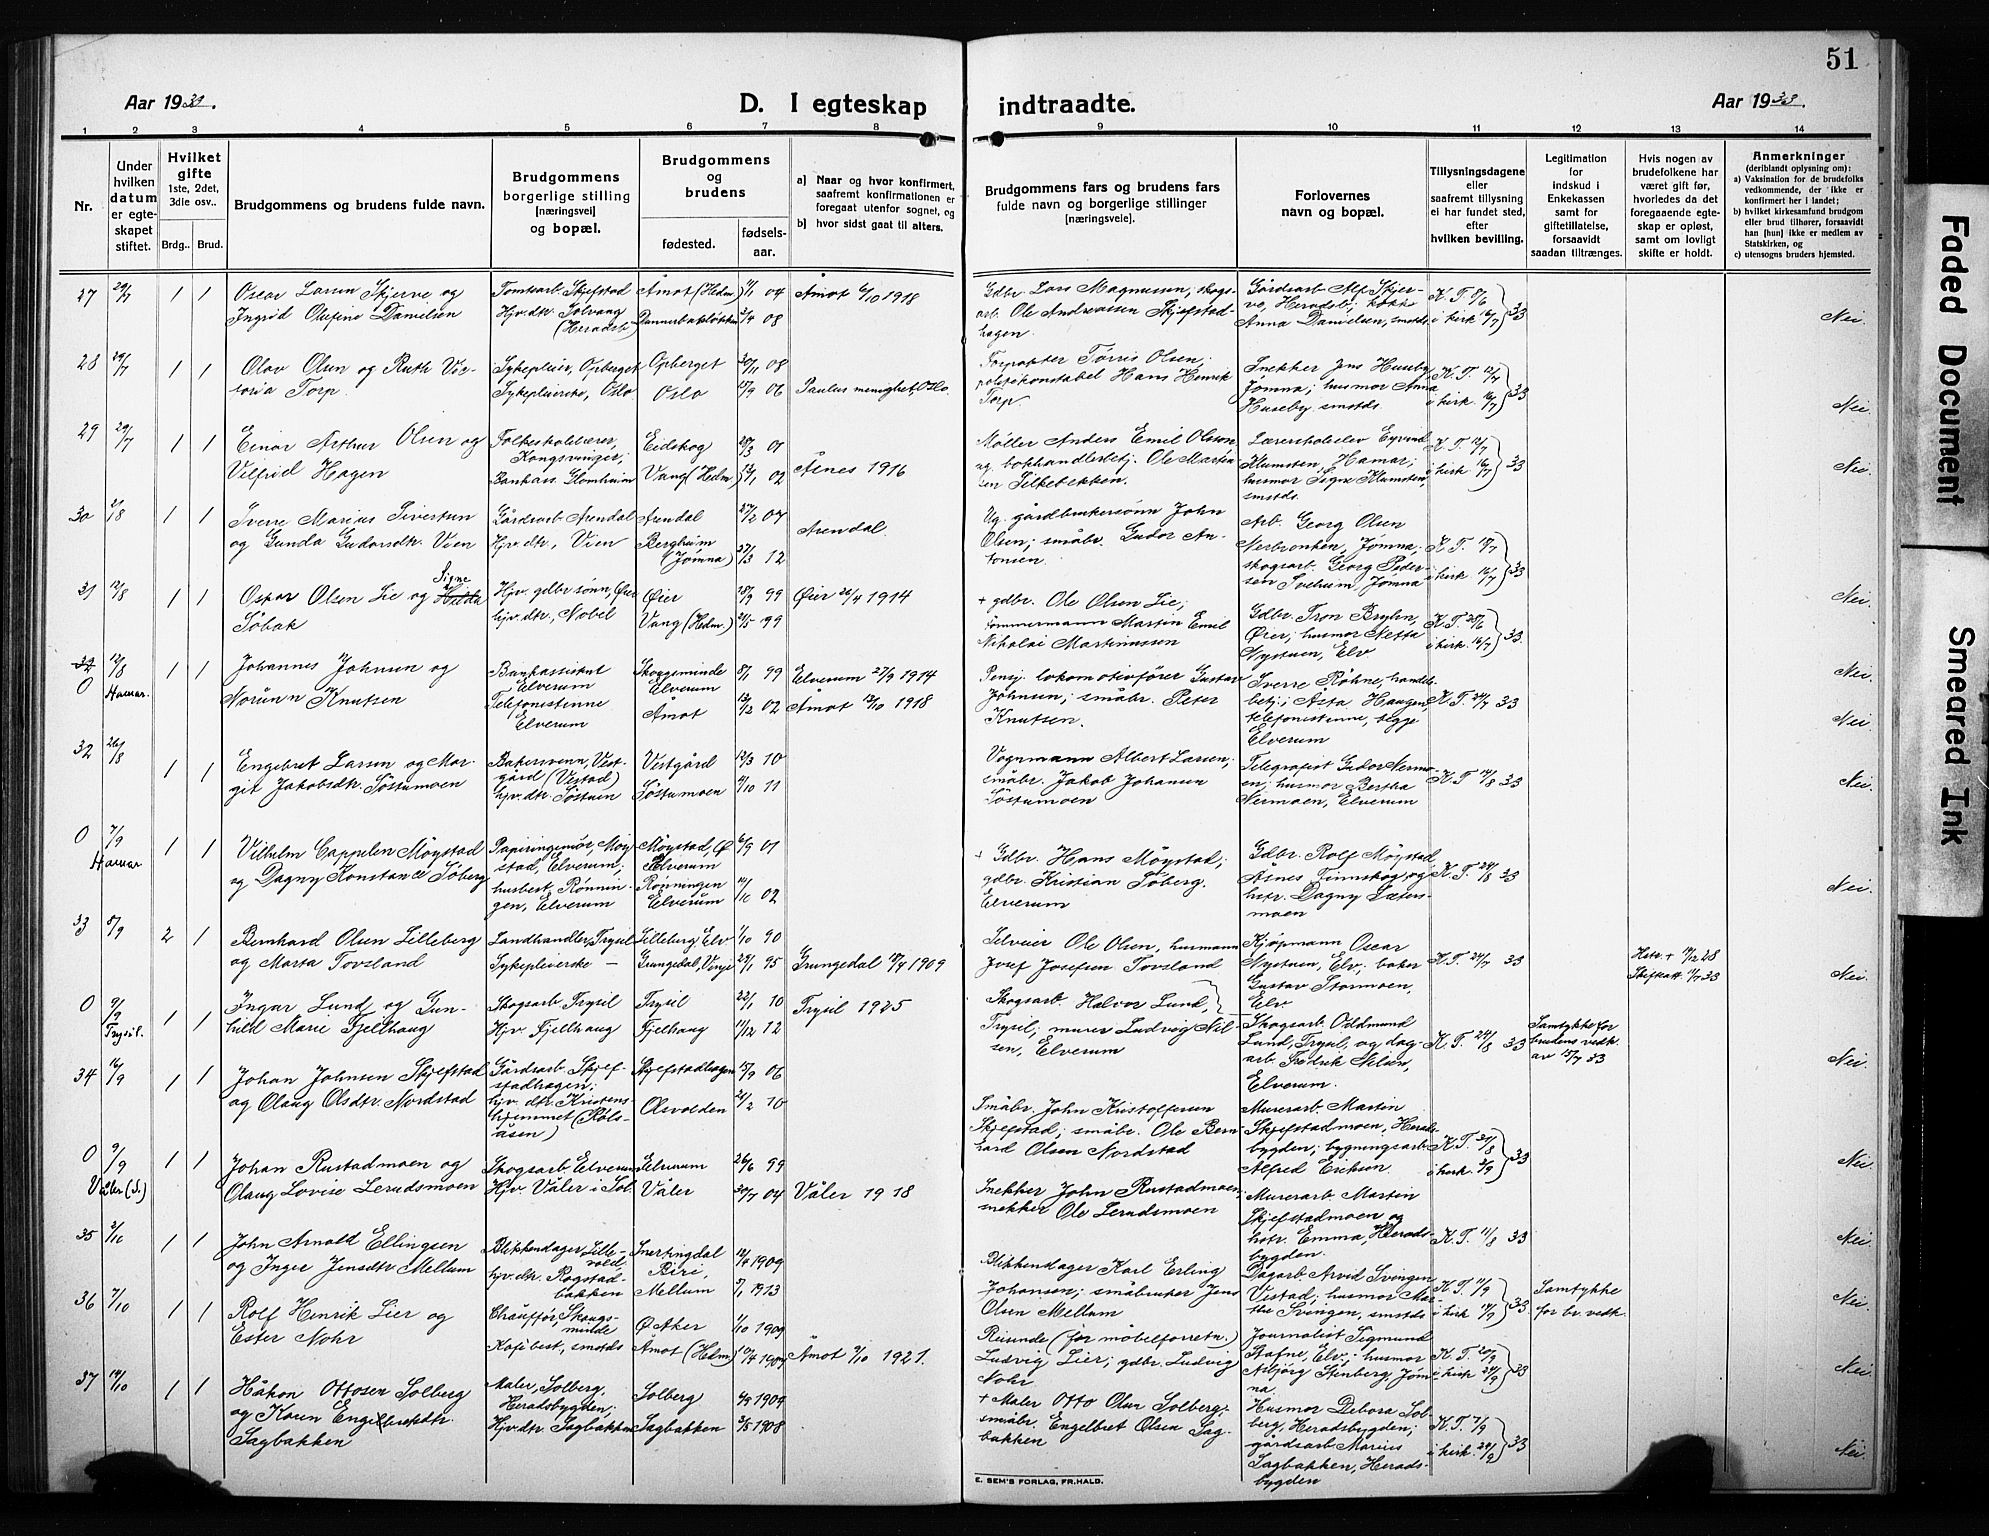 51
Aar 1933.
D. I egteskap indtraadte.
Aar 1933.
1 2 3 4 5 6 7 8 9 10 11 12 13 14
Nr.
Under hvilken datum er egteskapet stiftet.
Hvilket gifte 1ste, 2det, 3die osv..
Brdg..
Brud.
Brudgommens og brudens fulde navn.
Brudgommens borgerlige stilling [næringsvei] og bopæl.
Brudgommens og brudens
fødested.
fødselsaar.
a) Naar og hvor konfirmert, saafremt konfirmationen er foregaat utenfor sognet, og
b) hvor sidst gaat til alters.
Brudgommens fars og brudens fars fulde navn og borgerlige stillinger [næringsveie].
Forlovernes navn og bopæl.
Tillysningsdagene eller saafremt tillysning ei har fundet sted, efter hvilken bevilling.
Legitimation for indskud i Enkekassen samt for giftetillatelse, forsaavidt saadan tiltrænges.
Hvis nogen av brudefolkene har været gift før, hvorledes da det foregaaende egteskap er opløst, samt om lovlig skifte er holdt.
Anmerkninger (deriblandt oplysning om):
a) Vaksination for de brudefolks vedkommende, der ikke er konfirmert her i landet;
b) hvilket kirkesamfund brudgom eller brud tilhører, forsaavidt han [hun] ikke er medlem av Statskirken, og
c) utensogns bruders hjemsted.
27 29/7 1 1 Oscar Larsen Skjerve og Ingrid Olufine Danielsen
Tomtearb. Skjefstad Hjv. dtr. Solvang (Heradsb.)
Åmot (Hedm.) 04 08 Åmot 1918
Gdbr. Lars Magnussen; skogsarb. Ole Andreassen Skjefstadhagen.
Gårdsarb. Alf Skjerve, Heradsb; kokke Anna Danielsen, smstds.
K. T. 8/6 i kirk 16/7 33
Nei.
28 29/7 1 1 Olav Olsen og Ruth Victoria Torp.
Sykepleier, Opberget Sykepleierske, Oslo
Opberget 08 Oslo 06 Paulus menighet, Oslo.
Torpakter Tørris Olsen; politikonstabel Hans Henrik Torp.
Snekker Jens Huseby Jømna; husmor Anna Huseby smstds.
K. T. 12/7 i kirk. 16/7 33
Nei.
29 29/7 1 1 Einar Arthur Olsen og Vilfrid Hagen
Folkeskolelærer, Kongsvinger; Bankass. Glomheim
Eidskog 01 Vang (Hedm) 02 Åsnes 1916
Møller Anders Emil Olsen og bokhandlerbetj. Ole Martinsen Silkebekken.
Lærerskoleelev Eyvind Klumsten, Hamar; husmor Signe Klumsten, smstds.
K. T. 12/7 i kirk. 16/7 33
Nei.
30 2/8 1 1 Sverre Marius Sivertsen og Gunda Gudorsdtr. Vien
Gårdsarb. Arendal Hjv. dtr., Vien
Arendal 27/2 07 Bergheim (Jømna) 27/3 12 Arendal.
Ug. gårdbrukersønn John Olsen; småbr. Gudor Antonsen
Arb. Georg Olsen Nerbronken, Jømna; skogsarb. Georg Pedersen Svehum, Jømna
K. T. i kirk. 16/7 33
Nei.
31 12/8 1 1 Oskar Olsen Lie og Signe Søbak
Hjv. gdbr. sønn, Øier hjv. dtr., Nobel
Øier 18/9 99 Vang (Hedm.) 99 Øier 26/4 1914
+ gdbr. Ole Olsen Lie; tømmermann Martin Emil Nikolai Martinussen
Gdbr. Tron Bryhn, Øier; husmor Netta Nystuen, Elv
K. T. 25/6 i kirk 16/7 33.
Nei.
32 0 12/8 Hamar. 1 1 Johannes Johnsen og Norunn Knutsen
Bankassistent Elverum Telefonistinne Elverum
Skogsminde Elverum 8/1 99 Åmot 13/2 02
Elverum 27/9 1914 Åmot 13/10 1918
Pensj. lokomotivfører Gustav Johnsen; småbr. Peter Knutsen.
Sverre Røhne, handelsbetj.; Åsta Haugen, telefonistinne, begge Elverum
K. T. 24/7 33
Nei.
32 26/8 1 1 Engebret Larsen og Margit Jakobsdtr. Søstumoen
Bakersvenn, Vestgård (Vestad) hjv. dtr. Søstuen
Vestgård 12/3 10 Søstumoen 11
Vognmann Albert Larsen; småbr. Jakob Johansen Søstumoen
Telegrafist Gudor Nermoen; husmor Bertha Nermoen, Elverum
K. T. 14/8 33
Nei.
0 7/9 Hamar 1 1 Vilhelm Cappelen Møystad og Dagny Konstance Søberg
Papiringeniør, Møystad, Elverum; husbest. Rønningen, Elverum
Møystad, Ø Elverum 6/9 01 Rønningen Elverum 02
+ Gdbr. Hans Møystad; gdbr. Kristian Søberg. Elverum
Gdbr. Rolf Møystad, Åsnes Finnskog, og hstr. Dagny Sætersmoen
K. T. 24/8 33
Nei.
33 8/9 2 1 Bernhard Olsen Lilleberg og Marta Tovsland
Landhandler, Trysil Sykepleierske —
Lilleberg, Elv 1/10 90 Grungedal, Vinje 29/1 95 Grungedal 1909
Selveier Ole Olsen, husmann Josef Josefsen Tovsland
Kjøpmann Oscar Nystuen, Elv; baker Gustav Stormoen, Elv.
K. T. 24/7 33
Hstr. + 28 Skifteatt. 33
Nei.
0 9/9 Trysil. 1 1 Ingar Lund og Gunhild Marie Fjelthaug
Skogsarb. Trysil Hjv. Fjelhaug
Trysil 22/1 10 Fjelhaug 11/12 12 Trysil 1925
Skogsarb. Halvor Lund, Trysil; murer Ludvig Nilsen, Elverum
Skogsarb. Oddmund Lund, Trysil, og dagarb. Fredrik Nilsen, Elverum.
K. T. 24/8 33
Samtykke for brudens vedk. av 15/7 33
Nei.
34 16/9 1 1 Johan Johnsen Skjefstad og Olaug Olsdtr. Nordstad
Gårdsarb. Skjefstadhagen; hjv. dtr. Kristenshjemmet (Rølsåsen)
Skjefstadhagen 15/9 06 Olsvolden 10
Småbr. John Kristoffersen Skjefstad; småbr. Ole Bernhard Olsen Nordstad
Murerarb. Martin Skjefstadmoen, Heradsbygden; bygningsarb. Alfred Eriksen
K. T. i kirk. 3/9 33
Nei.
0 9/9 Våler (S.) 1 1 Johan Rustadmoen og Olaug Lovise Lerudsmoen
Skogsarb. Elverum Hjv. Våler i Sol.
Elverum 26/6 99 Våler 04 Våler 1918
Snekker John Rustadmoen; snekker Ole Lerudsmoen
Murerarb. Martin Skjefstadmoen og hstr. Emma, Heradsbygden.
K. T. 11/8 33
Nei.
35 3/10 1 1 John Arnold Ellingsen og Inger Jensdtr Mellum
Blikkenslager, Lillevold, hjv. dtr. Rogstadbakken
Snertingdal Biri, 1909 Mellum 1913
Blikkenslager Karl Erling Johansen; småbruker Jens Olsen Mellum
Dagarb. Arvid Svingen Vestad; husmor Marthe Svingen, smstds
K. T. 11/9 i kirk 33
Samtykke for br. vedk.
Nei.
36 7/10 1 1 Rolf Henrik Lier og Ester Nohr
Chauffør, Skougsminde Kafébest., smstds
Ø Aker 1/10 1909 Åmot (Hedm) Åmot 9/10 1921.
Reisende (for møbelforretn.) Ludvig Lier; gdbr. Ludvig Nohr
Journalist Sigmund Stafne, Elv.; husmor Asbjørg Stenberg, Jømna.
K. T. 20/9 i kirk 24/9 33
Nei.
37 14/10 1 1 Håkon Ottosen Solberg og Karen Engebretsdtr. Sagbakken
Maler, Solberg, Heradsbygden; Hjv. dtr. Sagbakken
Solberg 1904 Sagbakken 1908
+ Maler Otto Olsen Solberg; småbr. Engelbret Olsen Sagbakken
Husmor Debora Solberg, Heradsbygden; gårdsarb. Marius Sagbakken, Heradsbygden
K. T. 7/9 i kirk. 24/9 33
Nei.
E. SEM'S FORLAG, FR.HALD.
Faded Document
Smeared Ink